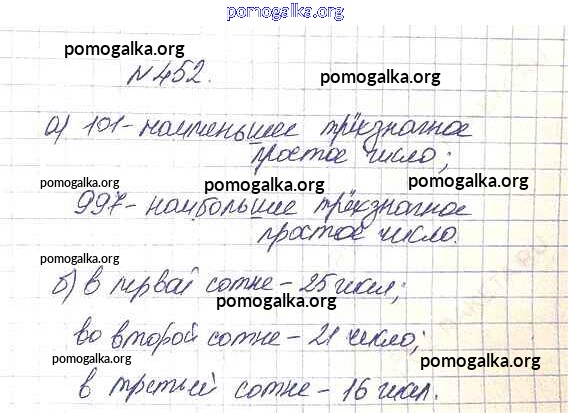 pomogalka.org
pomogalka.org
N 452.
pomogalka.org
а) 101 - наименьшее трёхзначное
простое число;
pomogalka.org pomogalka.org pomogalka.org
997 - наибольшее трёхзначное
простое число.
pomogalka.org pomogalka.org
б) в первой сотне - 25 чисел;
pomogalka.org
во второй сотне - 21 число;
pomogalka.org pomogalka.org
в третьей сотне - 16 чисел.
pomogalka.org